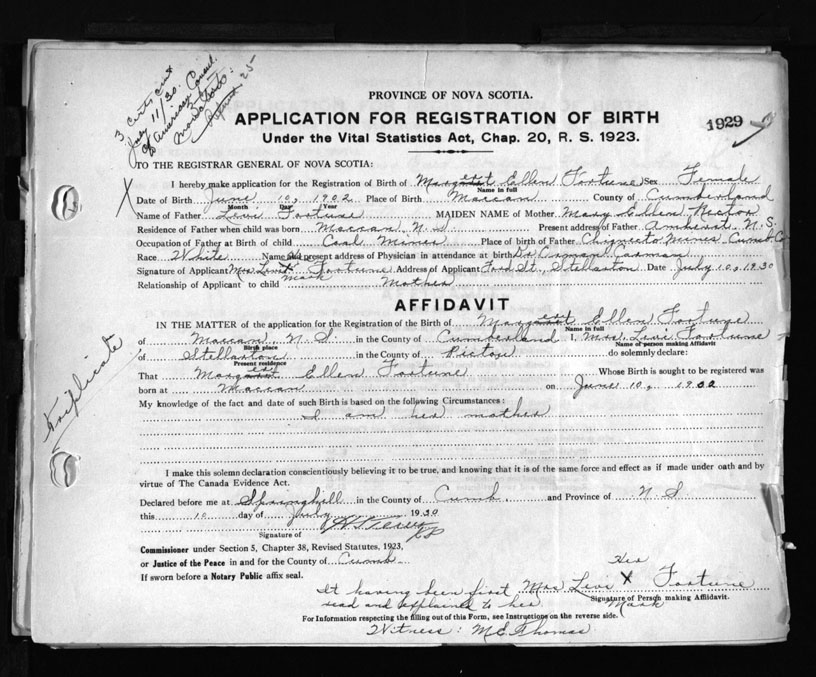 3 certs out
July 11/30.
of American Consul.
PROVINCE OF NOVA SCOTIA.
APPLICATION FOR REGISTRATION OF BIRTH
1929
Under the Vital Statistics Act, Chap. 20, R. S. 1923.
TO THE REGISTRAR GENERAL OF NOVA SCOTIA:
I hereby make application for the Registration of Birth of Margaret Ellen Fortune Sex Female
Name in full
Date of Birth June 10, 1902 Place of Birth Maccan County of Cumberland
Month Day Year
Name of Father Levi Fortune MAIDEN NAME of Mother Mary Ellen Rector
Residence of Father when child was born Maccan N. S. Present address of Father Amherst N. S.
Occupation of Father at Birth of child Coal Miner Place of birth of Father Chignecto Mines Cumb. Co
Race White Name and present address of Physician in attendance at birth Dr
Signature of Applicant Mrs Levi X Fortune Address of Applicant Ford St., Stellarton Date July 10, 1930
mark
Relationship of Applicant to child Mother
AFFIDAVIT
IN THE MATTER of the application for the Registration of the Birth of Margaret Ellen Fortune
Name in full
of Maccan, N. S. in the County of Cumberland I, Mrs. Levi Fortune
Birth place
Name of person making Affidavit
of Stellarton in the County of Pictou do solemnly declare:
Present residence
That Margaret Ellen Fortune Whose Birth is sought to be registered was
born at Maccan on June 10, 1902
My knowledge of the fact and date of such Birth is based on the following Circumstances:
I am her mother
Triplicate
I make this solemn declaration conscientiously believing it to be true, and knowing that it is of the same force and effect as if made under oath and by
virtue of The Canada Evidence Act.
Declared before me at Springhill in the County of Cumb and Province of N. S.
this 10 day of July 1930
Signature of
Commissioner under Section 5, Chapter 38, Revised Statutes, 1923,
or Justice of the Peace in and for the County of Cumb
If sworn before a Notary Public affix seal.
Her
It having been first Mrs Levi X Fortune
read and explained to her
Signature of Person making Affidavit.
Mark
For Information respecting the filling out of this Form, see Instructions on the reverse side.
Witness: M E Thomas